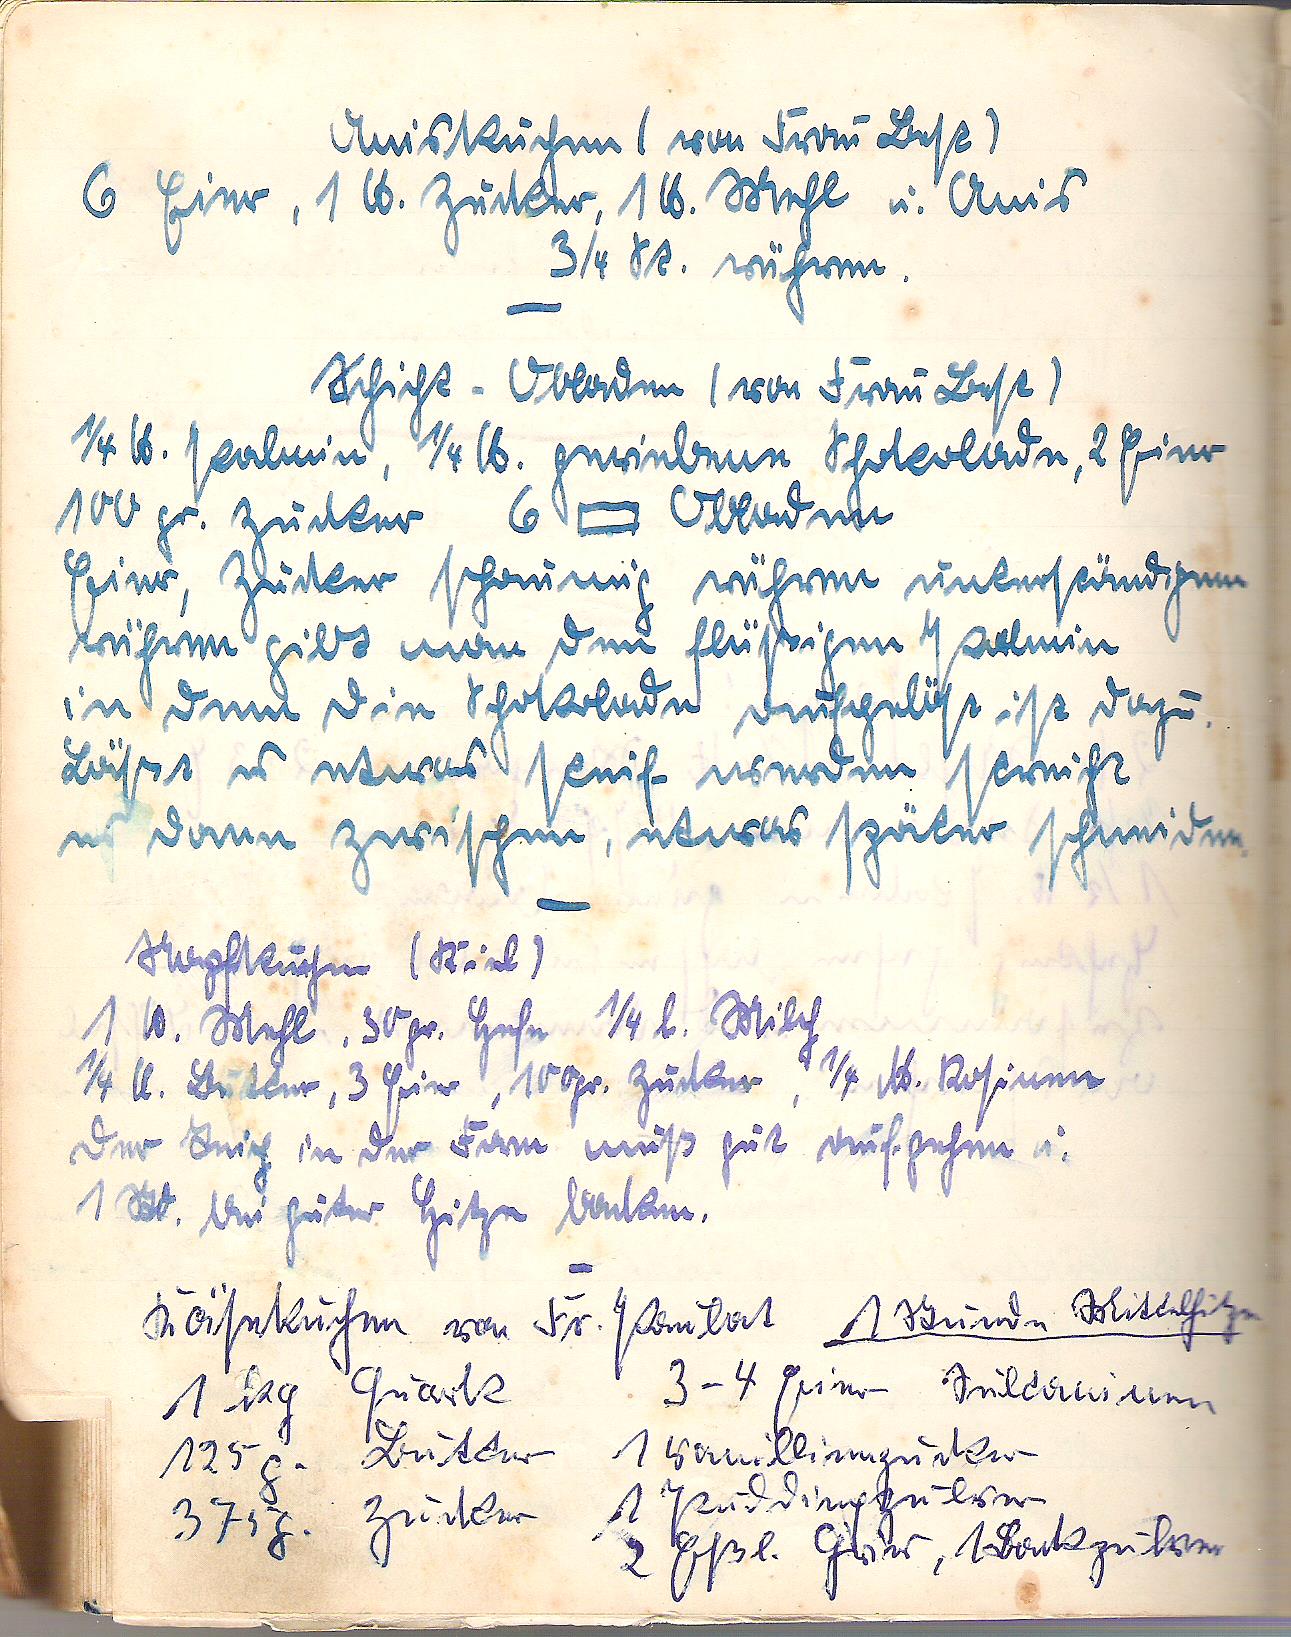 Aniskuchen (von Frau Best)
6 Eier, 1 lb. Zucker, 1 lb. Mehl u. Anis
3/4 St. rühren.
Schicht-Obladen (von Frau Best)
1/4 lb. Palmin, 1/4 lb. geriebene Schokolade, 2 Eier
100 gr. Zucker 6 Obladen
Eier, Zucker schaumig rühren unterständigem
rühren gibt man den flüssigen Palmin
in dem die Schokolade aufgelöst ist dazu.
Lässt es etwas steif werden streicht
es dann zwischen, etwas später schneiden.
Napfkuchen (Kiel)
1 lb. Mehl, 30 gr. Hefe 1/4 l. Milch
1/4 lb. Butter, 3 Eier, 100 gr. Zucker, 1/4 lb. Rosinen
Der Teig in der Form muß gut aufgehen u.
1 St. bei guter Hitze backen.
Käsekuchen von Fr. Paulat 1 Stunde Mittelhitze
1 kg Quark 3-4 Eier Sultaninen
125 g. Butter 1 Vanillinzucker
375 g. Zucker 1 Puddingpulver
2 Eßl. Gries, 1 Backpulver